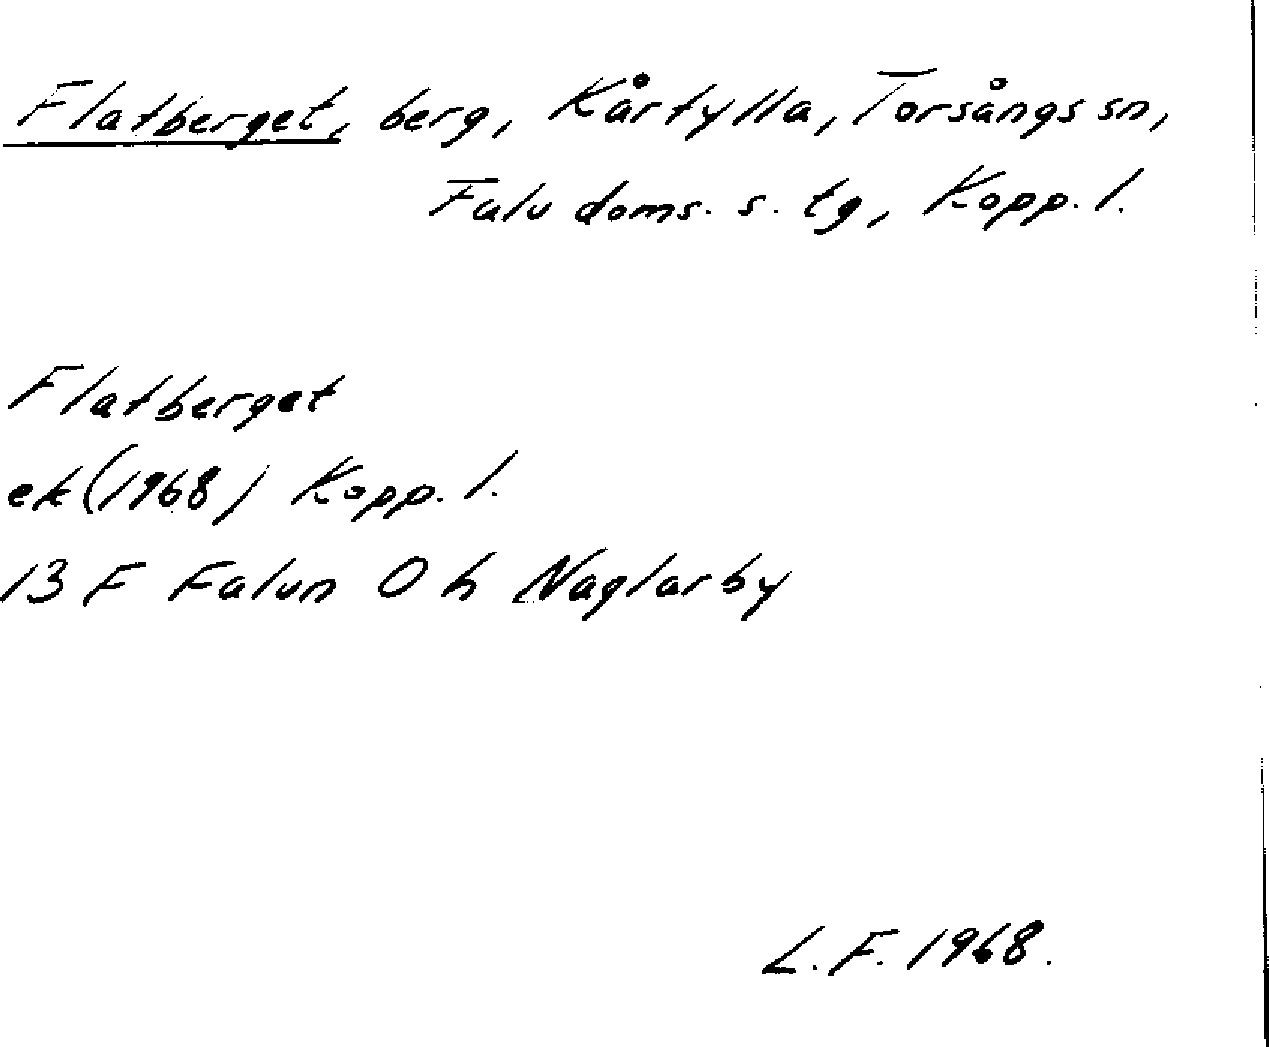 Flatberget, berg, Kårtylla, Torsångs sn,
Falu doms. s. tg, Kopp. l.
Flatberget
ek (1968) Kopp. l.
13 F Falun 0 h Naglarby
L. F. 1968.